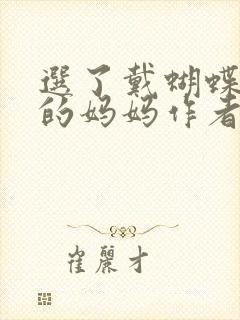 選了戴蝴蝶
的妈妈作者
崔麗才